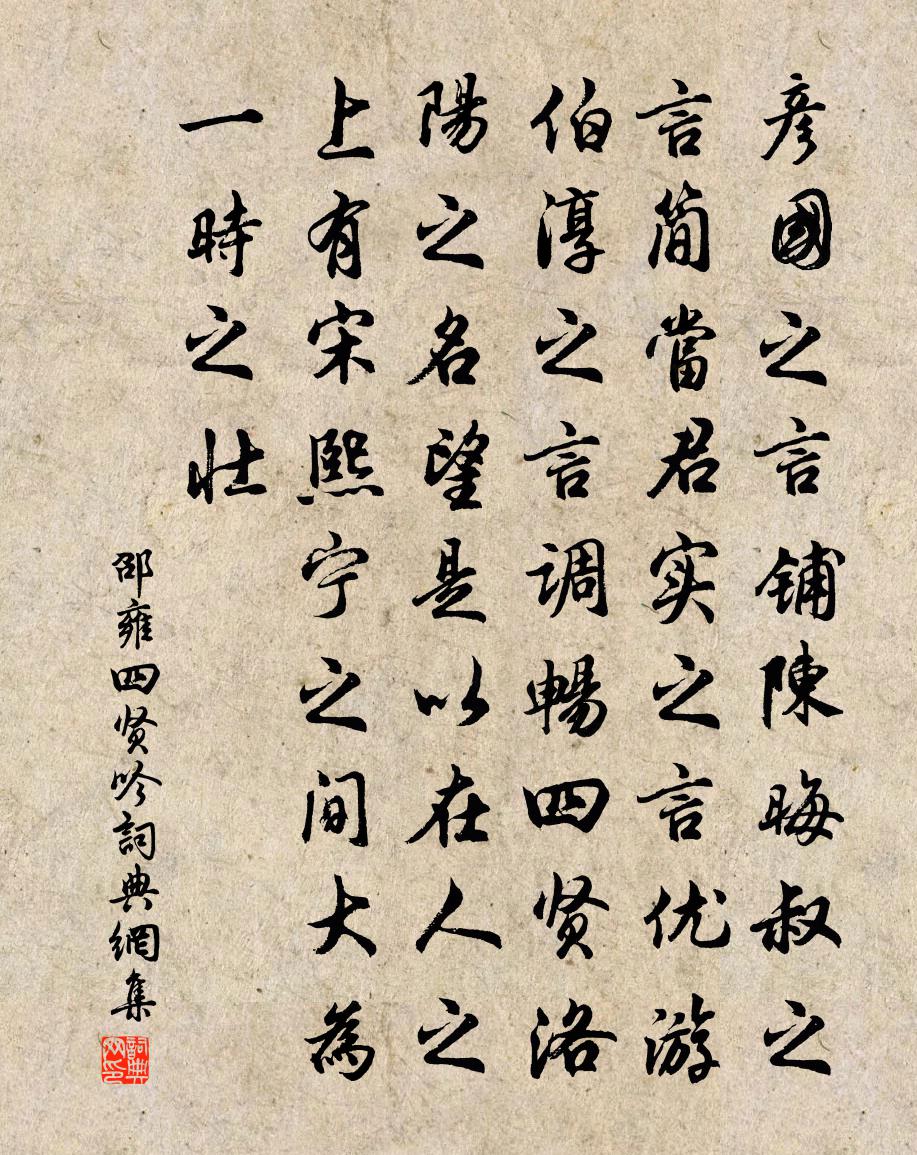 彦國之言铺陳晦叔之
言简當君实之言优游
伯淳之言调暢四贤洛
陽之名望是以在人之
上有宋熙宁之间大為
一時之壮
邵雍四贤吟詞典網集
詞典网印